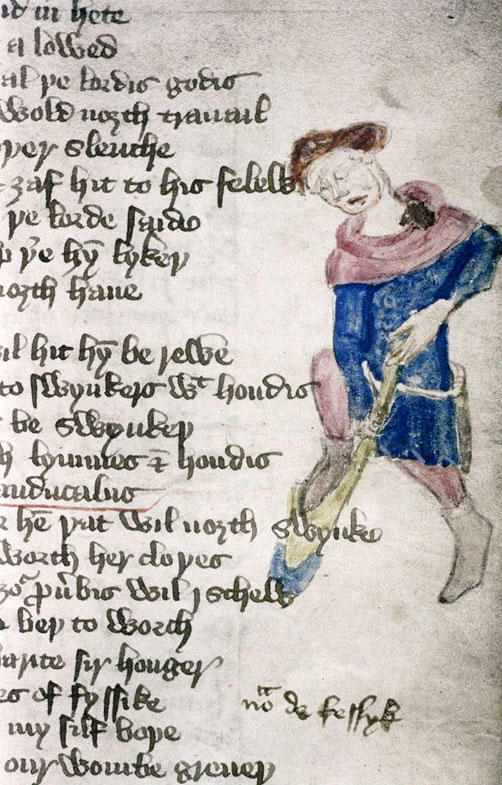 in hete
a lowed
al þe lordis godis
wold noȝth trauail
oþer sleuthe
ȝaf hit to his felew
þe lorde saide
þe hȳ lykeþ
noȝth haue
hit hȳ be rewe
to swynkers wᵗ hondis
be swynkeþ
lymmes & hondis
anducabus
hē þat wil noȝth swynke
worth her cloþes
p̄ubis wil j schew
beþ to worth
harite sir hongeꝛ
es of fyssike
my silf boþe
our wombe greueþ
nōᵃ de fessyk